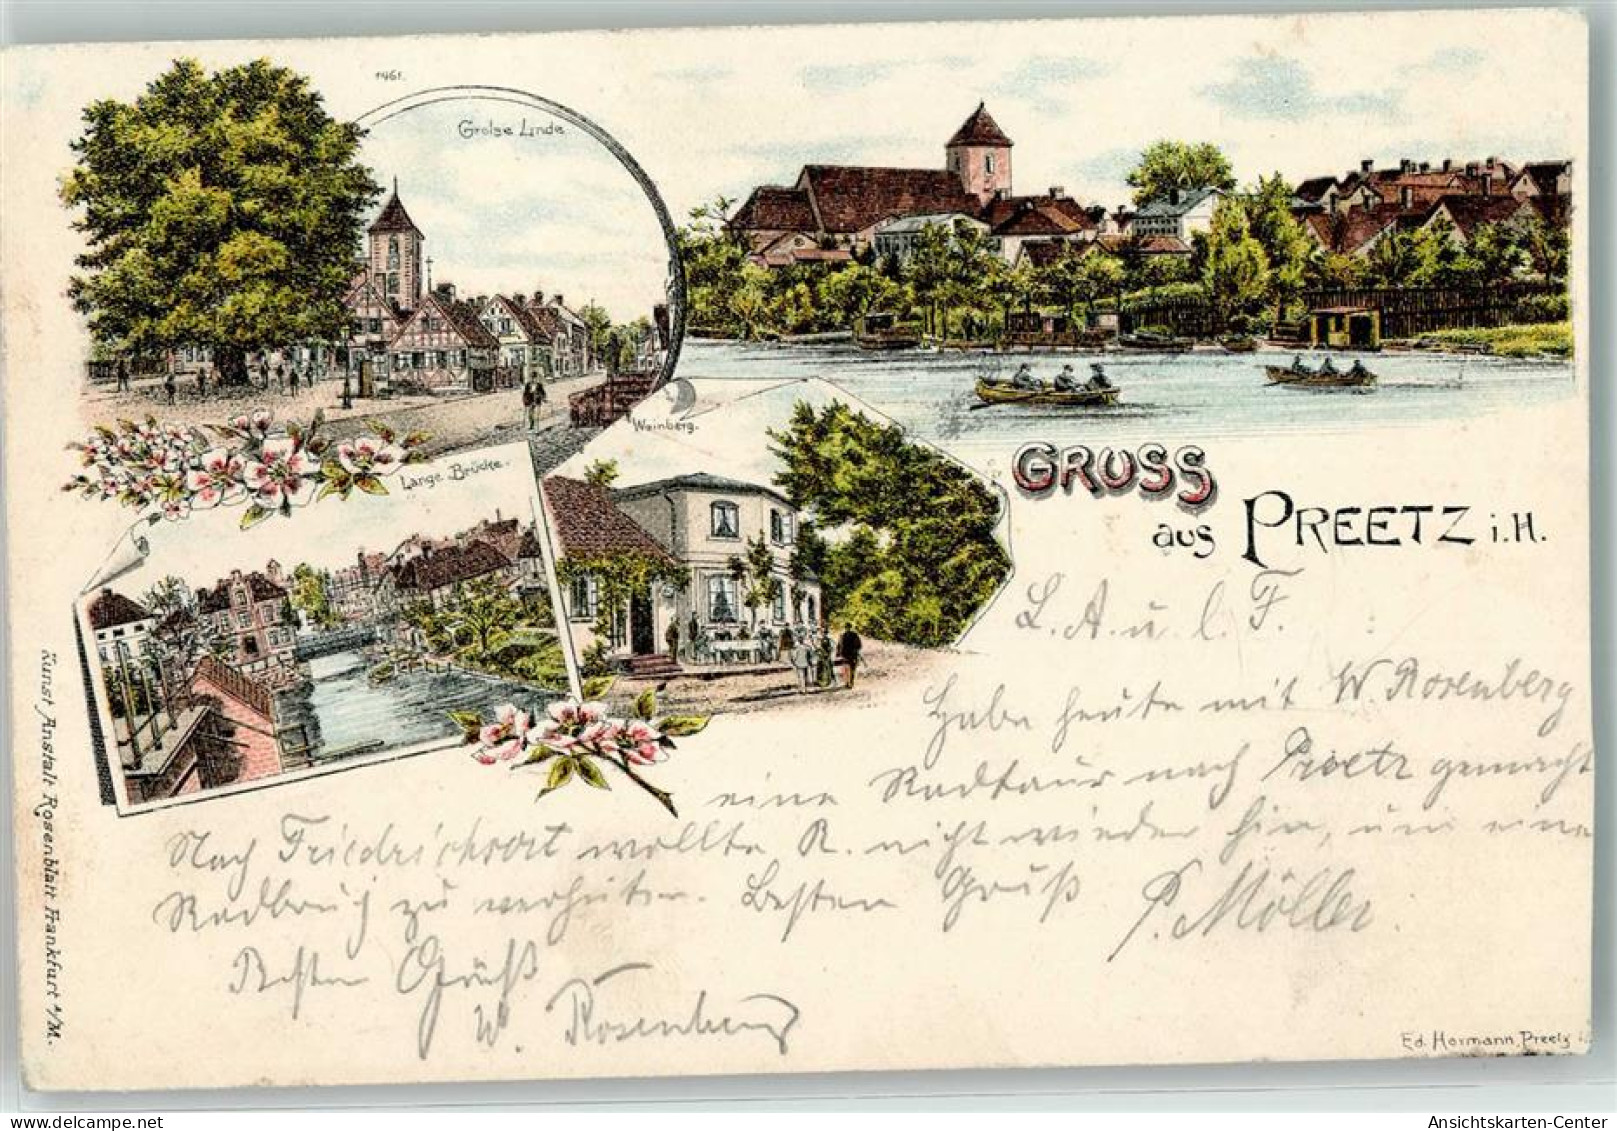 1461.
Grosse Linde
Weinberg.
Lange Brücke.
GRUSS
aus PREETZ i. H.
L. A. u. l. F.
Habe heute mit W. Rosenberg
eine Radtour nach Preetz gemacht
Nach Friedrichsort wollte R. nicht wieder hin, um eine
Radbruch zu verhüten. Besten Gruß P. Möller.
Besten Gruß
W. Rosenberg
Kunst Anstalt Rosenblatt Frankfurt a/M.
Ed. Hormann, Preetz
delcampe.net
Ansichtskarten-Center